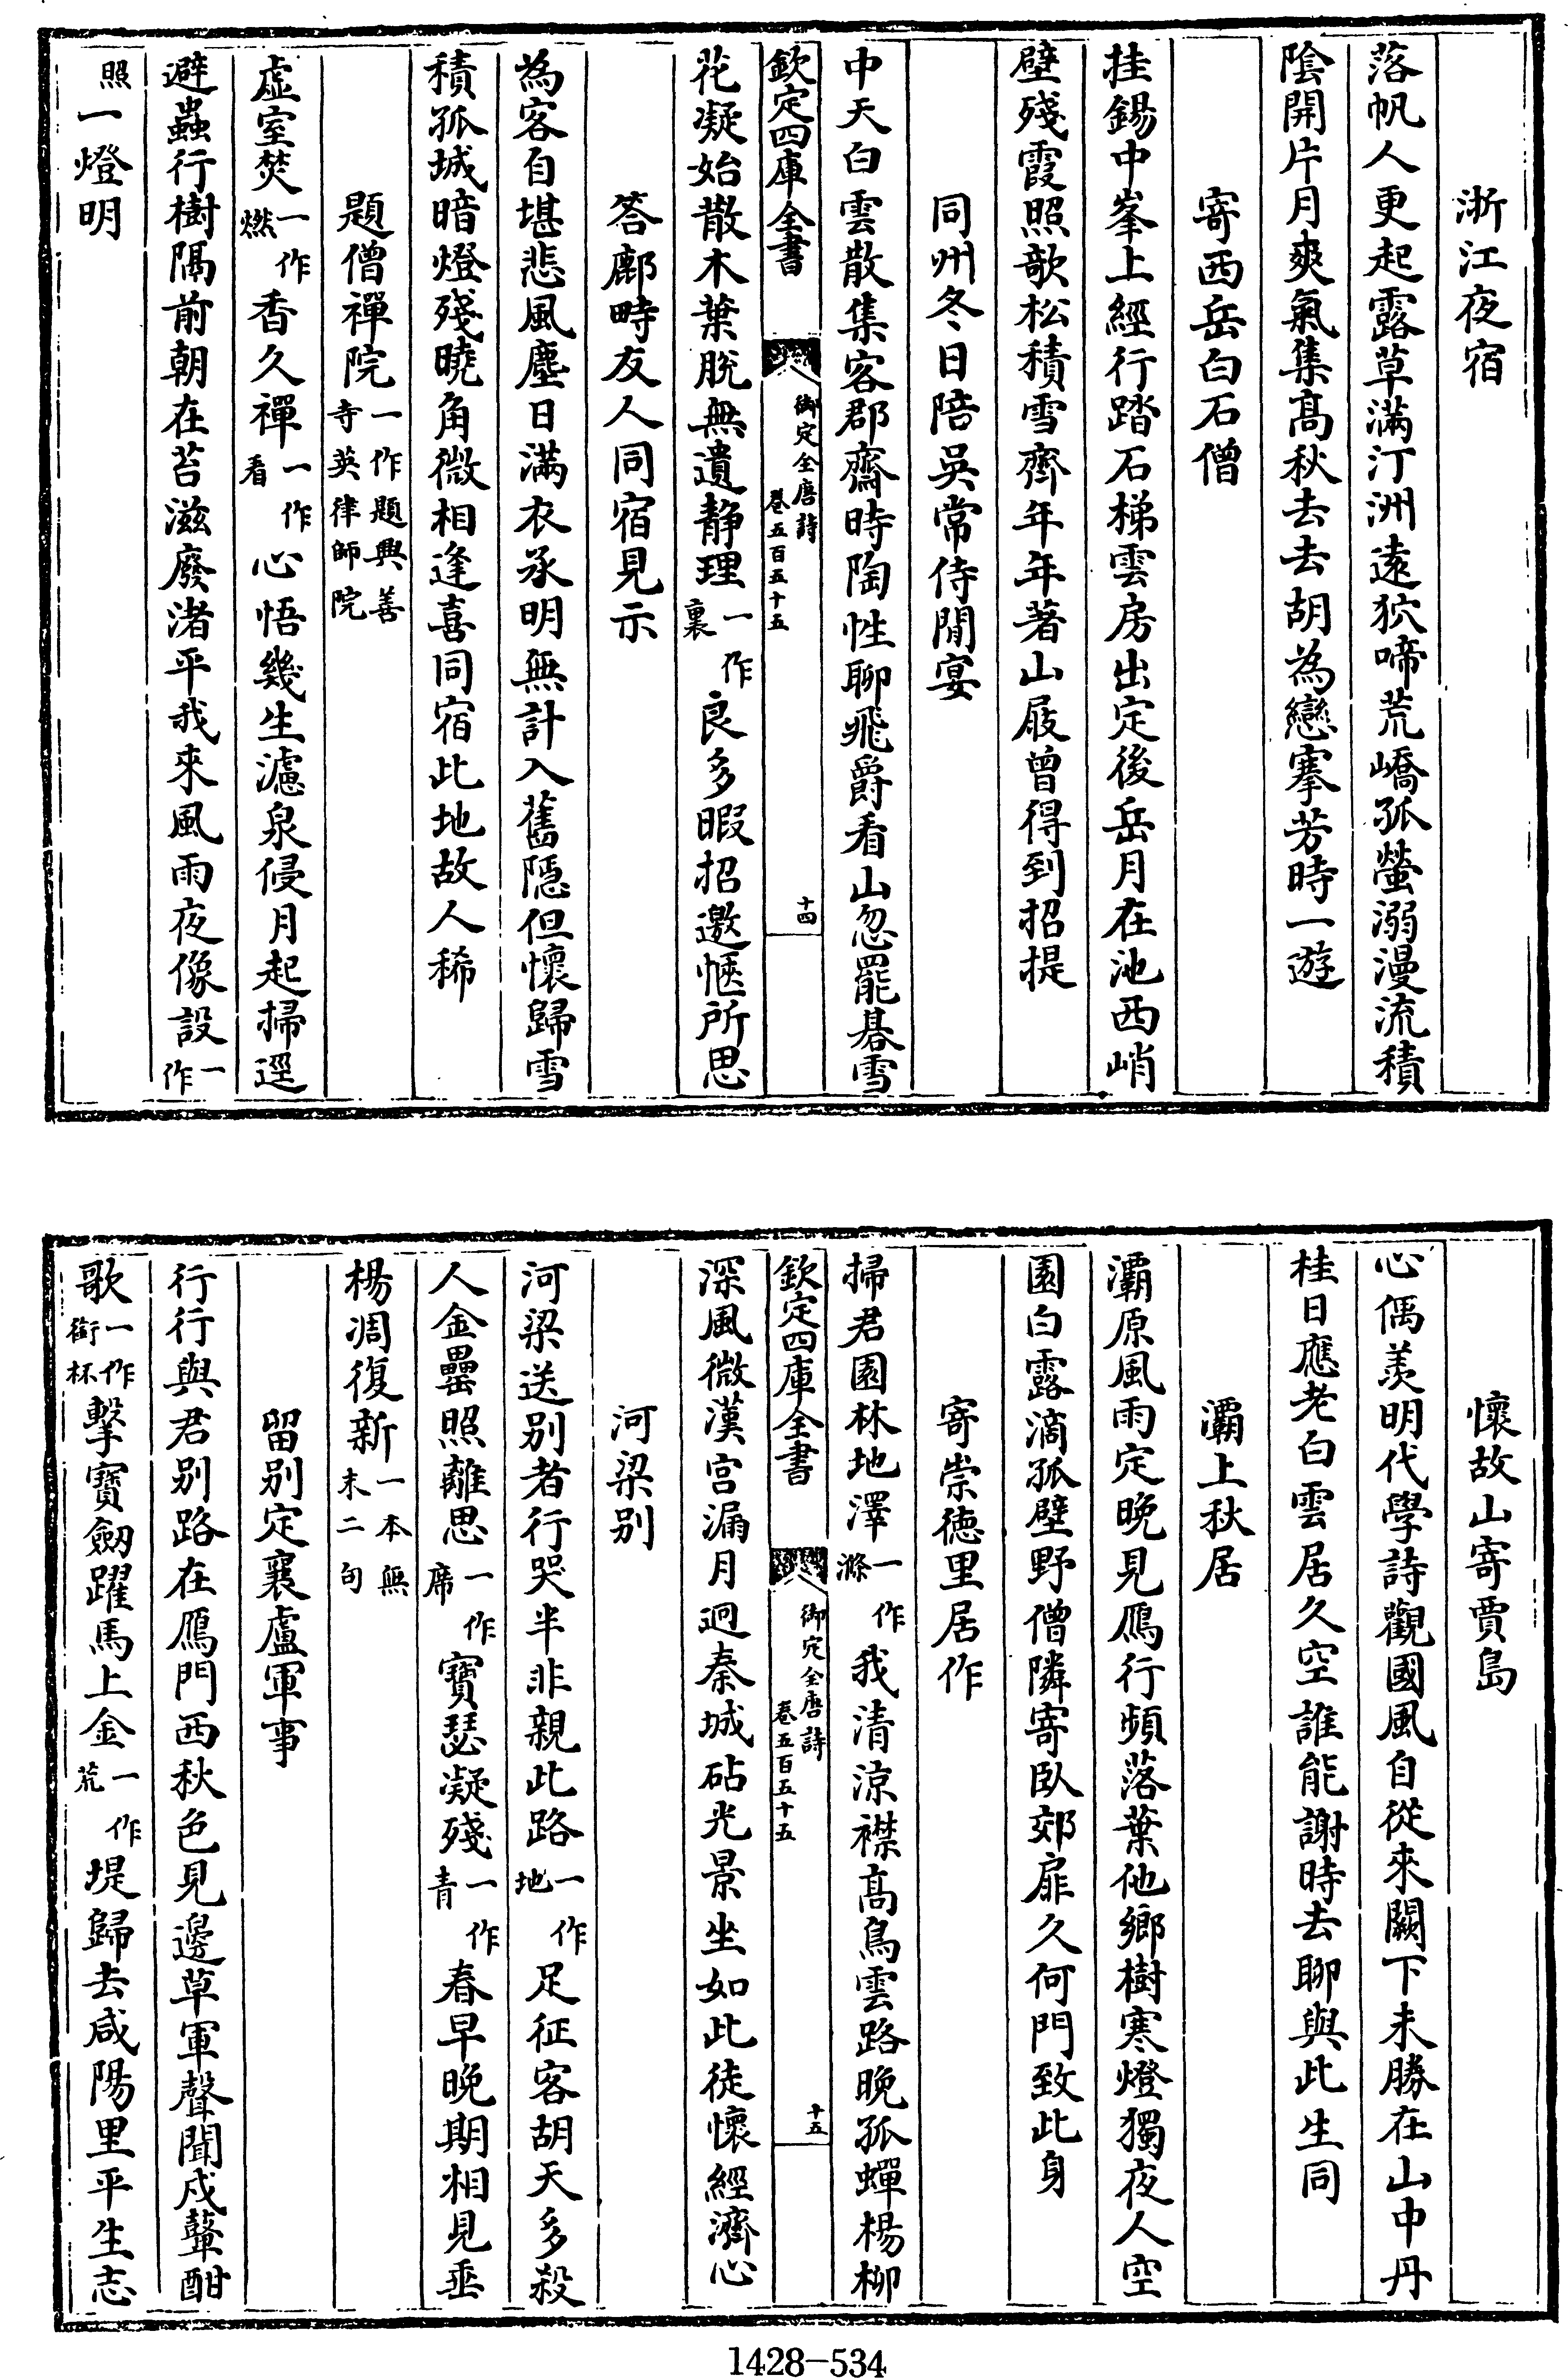 浙江夜宿
落帆人更起露草滿汀洲遠狖啼荒嶠孤螢溺漫流積
陰開片月爽氣集高秋去去胡為戀搴芳時一遊
寄西岳白石僧
挂錫中峯上經行踏石梯雲房出定後岳月在池西峭
壁殘霞照欹松積雪齊年年著山屐曾得到招提
同州冬日陪吳常侍閒宴
中天白雲散集客郡齋時陶性聊飛爵看山忽罷碁雪
欽定四庫全書 御定全唐詩 卷五百五十五 十四
花凝始散木葉脫無遺静理一作裏良多暇招邀愜所思
答鄜畤友人同宿見示
為客自堪悲風塵日滿衣承明無計入舊隱但懷歸雪
積孤城暗燈殘曉角微相逢喜同宿此地故人稀
題僧禪院一作題興善寺英律師院
虛室焚一作燃香久禪一作看心悟幾生濾泉侵月起掃逕
避蟲行樹隔前朝在苔滋廢渚平我來風雨夜像設一作
照一燈明
懷故山寄賈島
心偶羨明代學詩觀國風自從來闕下未勝在山中丹
桂日應老白雲居久空誰能謝時去聊與此生同
灞上秋居
灞原風雨定晚見鴈行頻落葉他鄉樹寒燈獨夜人空
園白露滴孤壁野僧隣寄臥郊扉久何門致此身
寄崇德里居作
掃君園林地澤一作滌我清涼襟高鳥雲路晚孤蟬楊柳
欽定四庫全書 御定全唐詩 卷五百五十五 十五
深風微漢宮漏月迥秦城砧光景坐如此徒懷經濟心
河梁別
河梁送別者行哭半非親此路一作地足征客胡天多殺
人金罍照離思一作席寶瑟凝殘一作青春早晚期相見垂
楊凋復新一本無末二句
留別定襄盧軍事
行行與君別路在鴈門西秋色見邊草軍聲聞戍鼙酣
歌一作銜杯擊寶劒躍馬上金一作荒堤歸去咸陽里平生志
1428-534